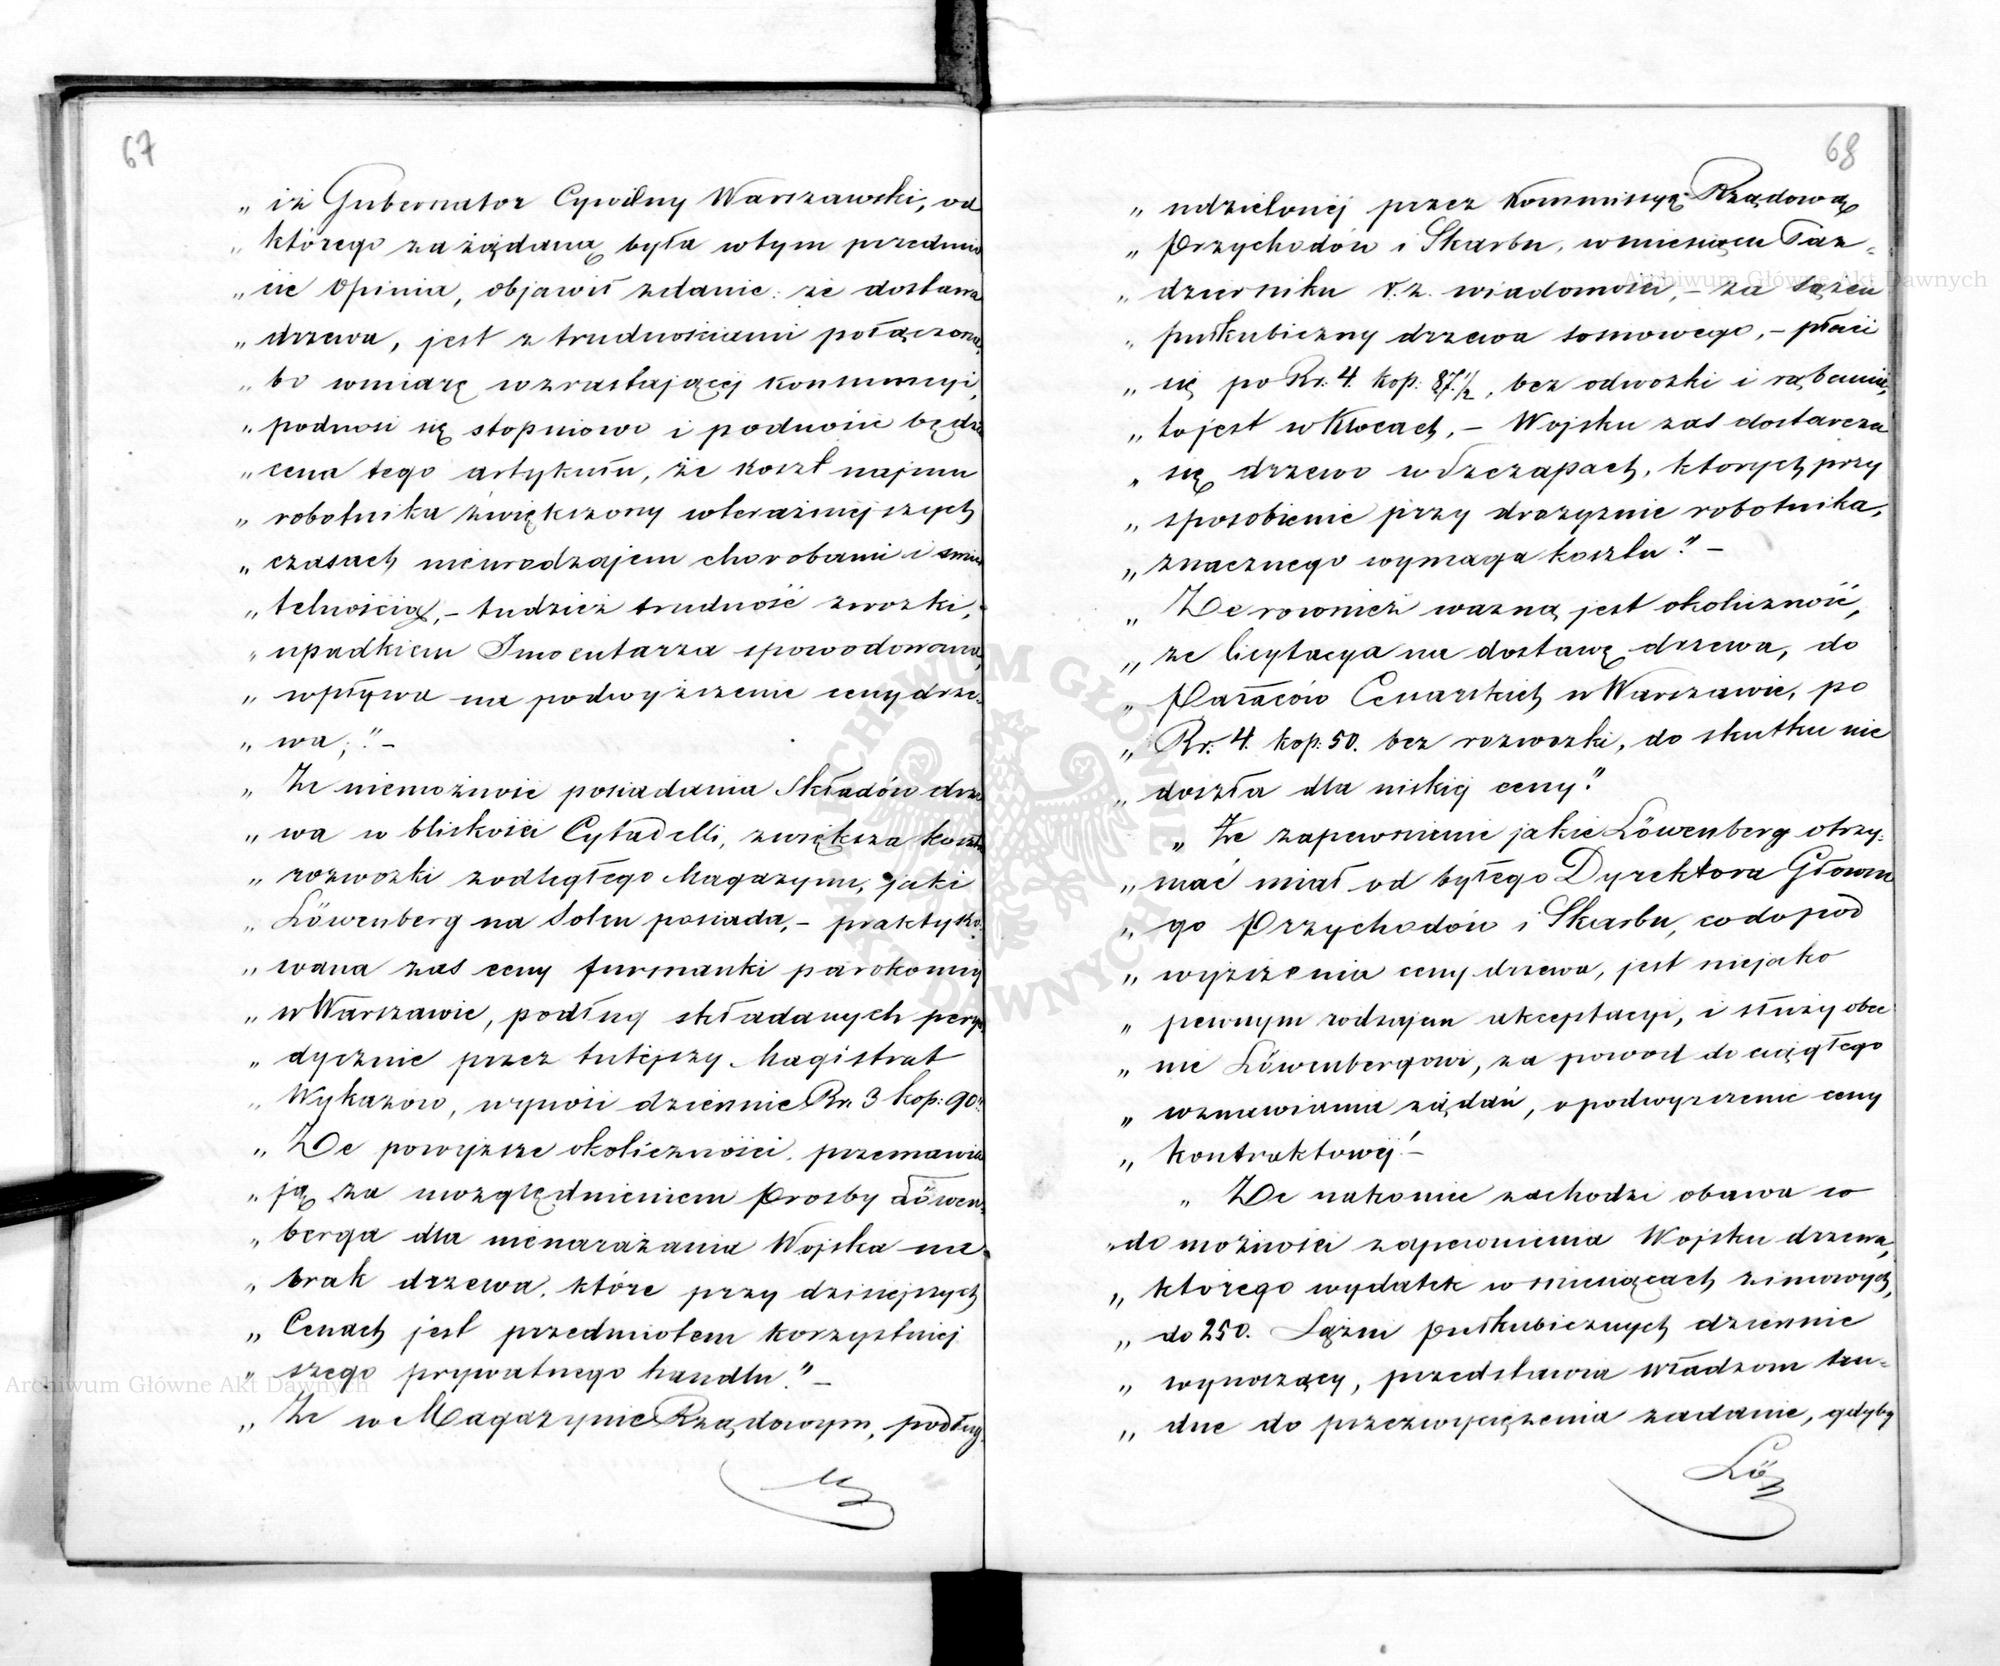 67
„ iż Gubernator Cywilny Warszawski, od
„ którego zażądaną była w tym przedmio
„ cie Opinia, objawił zdanie: że dostawa
„ drzewa, jest z trudnościami połączona,
„ bo wmiarę wzrastającéj konsumcyi,
„ podnosi się stopniowo i podnosić będzie
„ cena tego artykułu, że koszt najmu
„ robotnika zwiększony wteraźniejszych
„ czasach nieurodzajem chorobami i śmier
„ telnością, – tudzież trudność zwozki,
„ upadkiem Inwentarza spowodowana,
„ wpływa na podwyższenie ceny drze-
„ wa;" –
„ Że niemożność posiadania Składów drze
„ wa w bliskości Cytadelli, zwiększa koszta
„ rozwozki zodległego Magazynu, jaki
„ Löwenberg na Solcu posiada, – praktyko
„ wana zaś ceny furmanki parokonnéj
„ w Warszawie, podług składanych pery
„ dycznie przez tutejszy Magistrat
„ Wykazów, wynosi dziennie Rs. 3 kop: 90."
„ Że powyższe okoliczności, przemawia
„ ją za uwzględnieniem Prośby Löwen-
„ berga dla nienarażania Wojska na
„ brak drzewa, które przy dzisiejszych
„ Cenach jest przedmiotem korzystniej
„ szego prywatnego handlu." –
„ Że w Magazynie Rządowym, podług
68
„ udzielonéj przez Kommissyą Rządową
„ Przychodów i Skarbu, wmiesiącu Paź-
„ dzierniku r. z. wiadomości, – za sążeń
„ pułkubiczny drzewa sosnowego, – płaci
„ się po Rs: 4. kop: 87.½, bez odwozki i rąbania,
„ to jest w Klocach, – Wojsku zaś dostarcza
„ się drzewo w Szczapach, których przy
„ sposobienie przy drożyznie robotnika,
„ znacznego wymaga kosztu." –
„ Że rownież ważną jest okoliczność,
„ że licytacya na dostawę drzewa, do
„ Pałaców Cesarskich w Warszawie, po
„ Rs: 4. kop: 50. bez rozwozki, do skutku nie
„ doszła dla niskiéj ceny."
„ Że zapewnienie jakie Löwenberg otrzy-
„ mać miał od byłego Dyrektora Główne
„ go Przychodów i Skarbu, co do pod
„ wyższenia ceny drzewa, jest niejako
„ pewnym rodzajem akceptacyi, i służy obec
„ nie Löwenbergowi, za powod do ciągłego
„ wznawiania żądań, o podwyższenie ceny
„ kontraktowéj." –
„ Że nakoniec zachodzi obawa co
„ do możności zapewnienia Wojsku drzewa,
„ którego wydatek w miesiącach zimowych,
„ do 250. Sążni pułkubicznych dziennie
„ wynoszący, przedstawia władzom tru-
„ dne do przezwyciężenia zadanie, gdyby
Archiwum Główne Akt Dawnych
Archiwum Główne Akt Dawnych
ARCHIWUM GŁÓWNE AKT DAWNYCH